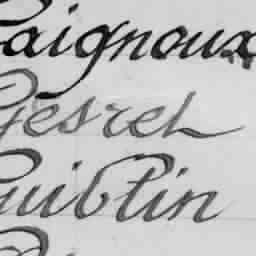 Caignoux
Gesrel
Guiblin